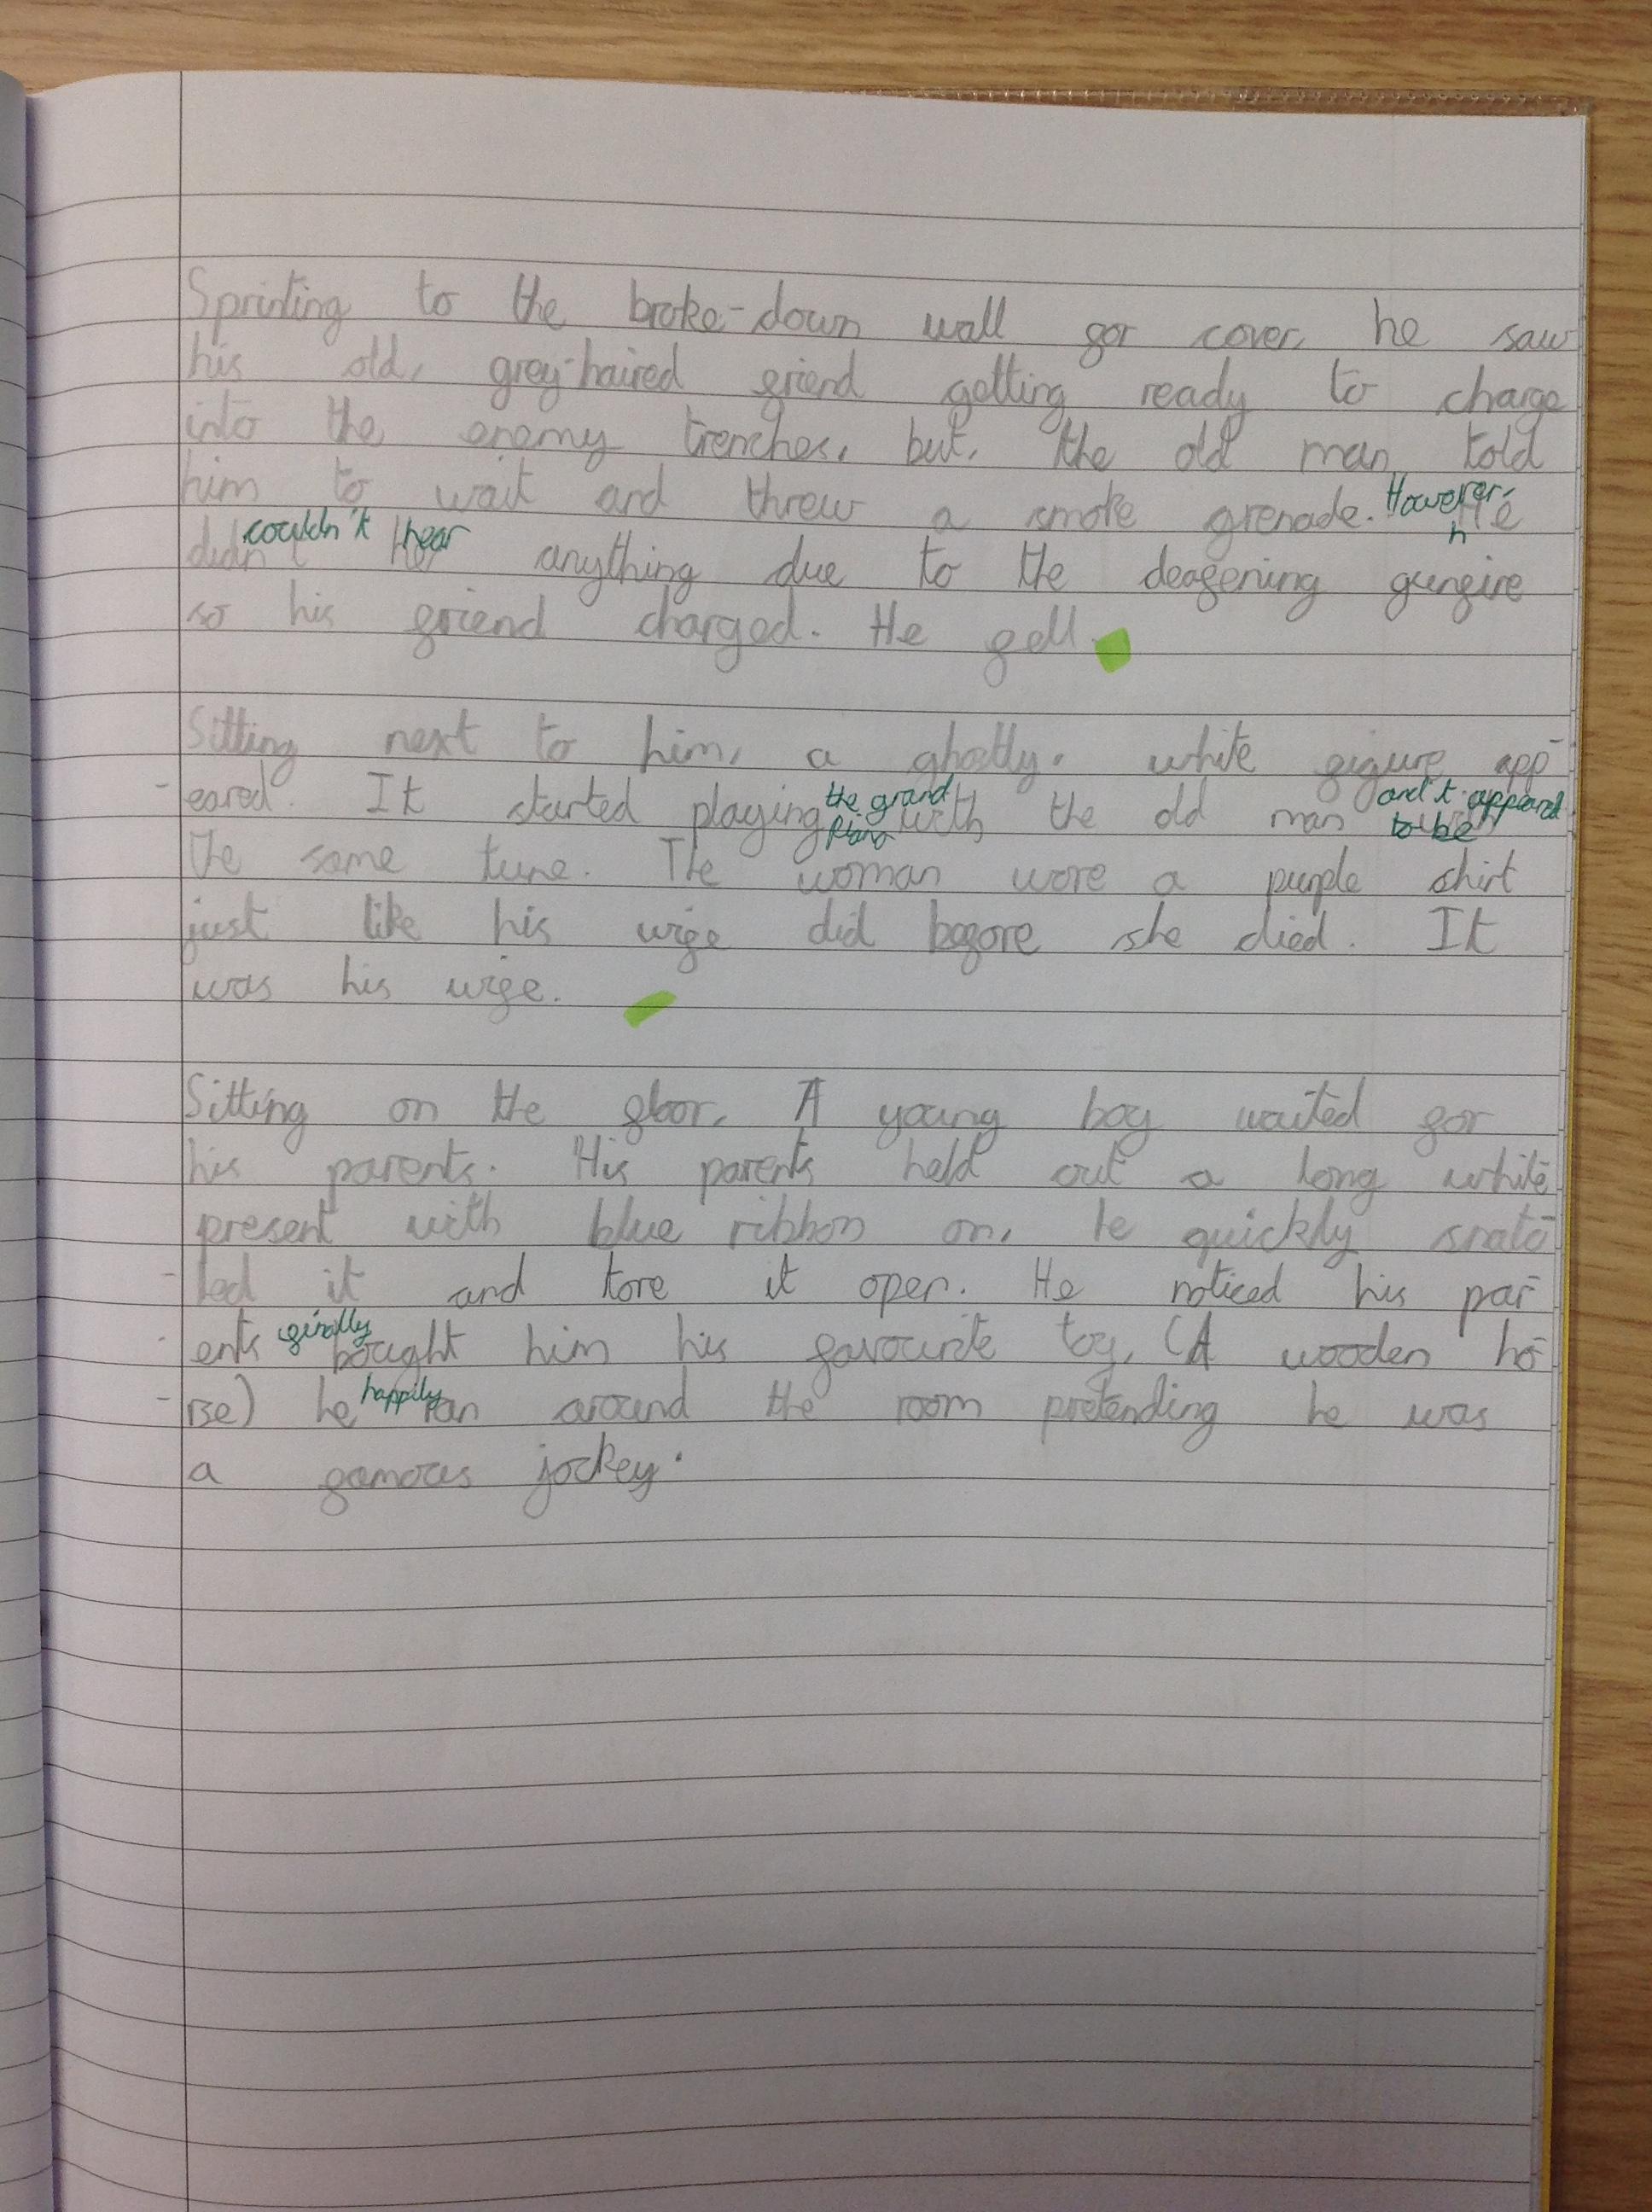 Sprinting to the broke-down wall for cover, he saw
his old, grey-haired friend getting ready to charge
into the enemy trenches, but, the old man told
him to wait and threw a smoke grenade. However, he
couldn't hear anything due to the deafening gunfire
so his friend charged. He fell.
Sitting next to him, a ghostly, white figure app-
-eared. It started playing the grand piano with the old man and it appeared to be
the same tune. The woman wore a purple shirt
just like his wife did before she died. It
was his wife.
Sitting on the floor, A young boy waited for
his parents. His parents held out a long white
present with blue ribbon on, he quickly snatc-
-hed it and tore it open. He noticed his par-
-ents finally bought him his favourite toy, (A wooden ho-
-rse) he happily ran around the room pretending he was
a famous jockey.